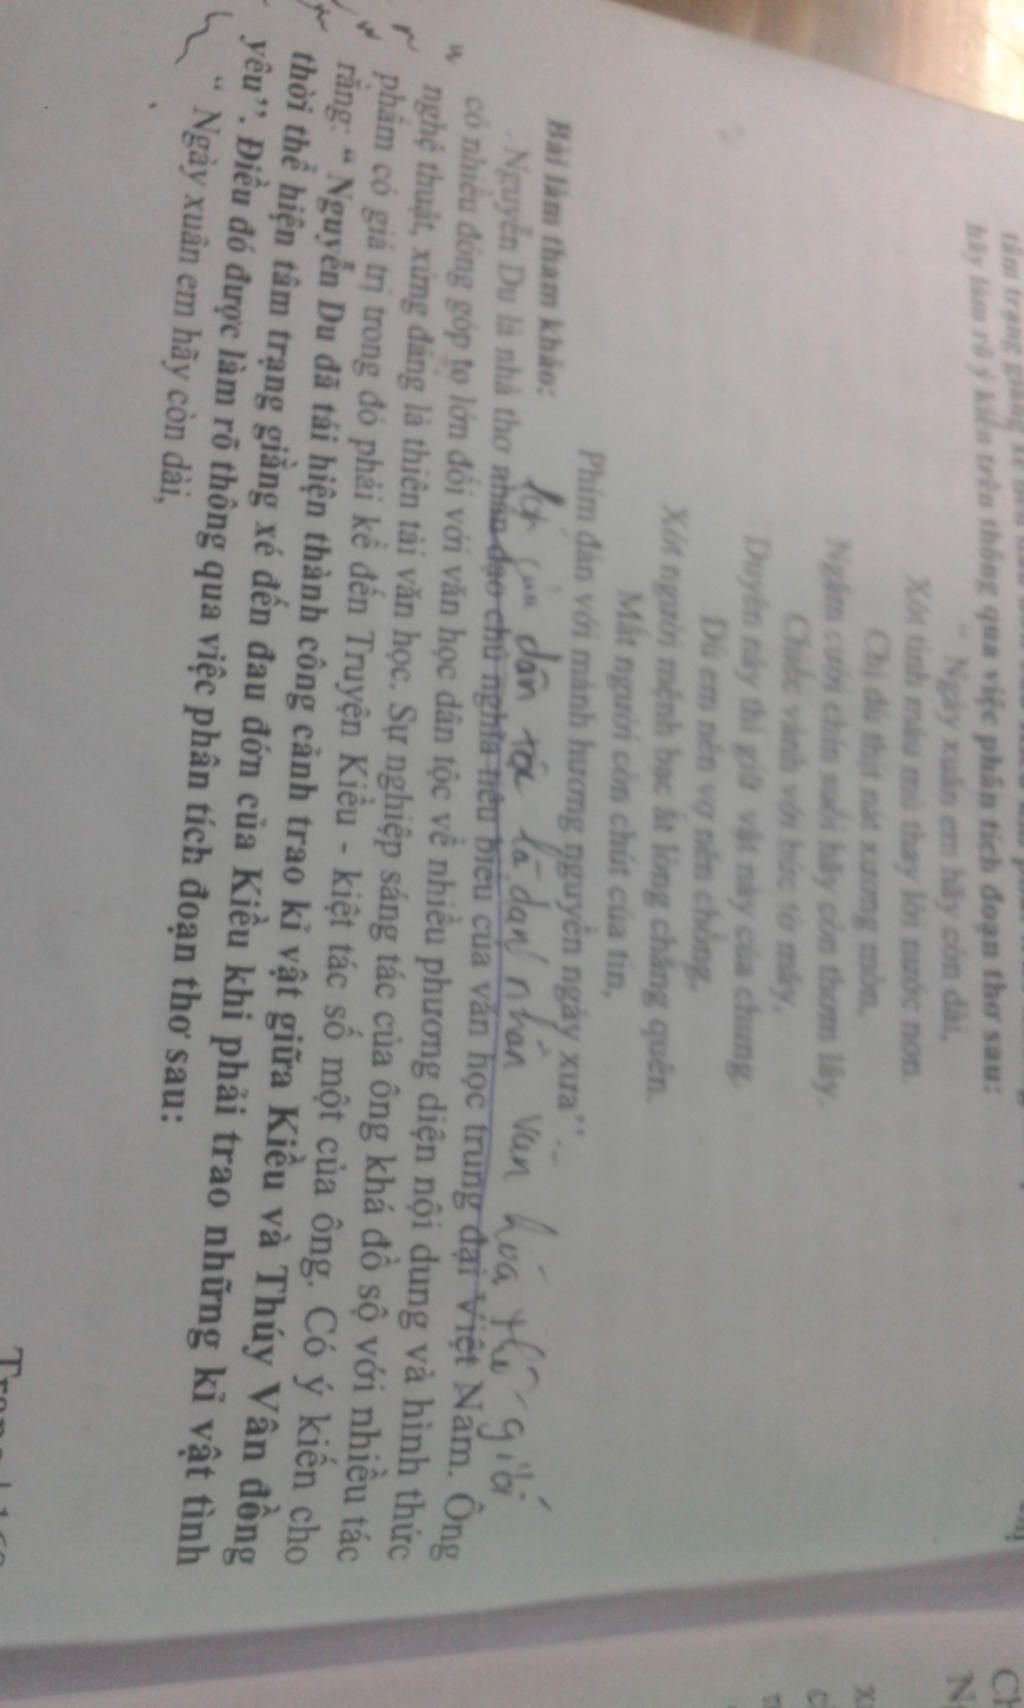 hãy làm rõ ý kiến trên thông qua việc phân tích đoạn thơ sau:
“ Ngày xuân em hãy còn dài,
Xót tình máu mủ thay lời nước non.
Chị dù thịt nát xương mòn,
Ngậm cười chín suối hãy còn thơm lây.
Chiếc vành với bức tờ mây,
Duyên này thì giữ vật này của chung.
Dù em nên vợ nên chồng,
Xót người mệnh bạc ắt lòng chẳng quên.
Mất người còn chút của tin,
Phím đàn với mảnh hương nguyền ngày xưa”
Bài làm tham khảo:
của dân tộc là danh nhân văn hoá thế giới
Nguyễn Du là nhà thơ nhân đạo chủ nghĩa tiêu biểu của văn học trung đại Việt Nam. Ông
có nhiều đóng góp to lớn đối với văn học dân tộc về nhiều phương diện nội dung và hình thức
nghệ thuật, xứng đáng là thiên tài văn học. Sự nghiệp sáng tác của ông khá đồ sộ với nhiều tác
phẩm có giá trị trong đó phải kể đến Truyện Kiều - kiệt tác số một của ông. Có ý kiến cho
rằng: “ Nguyễn Du đã tái hiện thành công cảnh trao kỉ vật giữa Kiều và Thúy Vân đồng
thời thể hiện tâm trạng giằng xé đến đau đớn của Kiều khi phải trao những kỉ vật tình
yêu”. Điều đó được làm rõ thông qua việc phân tích đoạn thơ sau:
“ Ngày xuân em hãy còn dài,